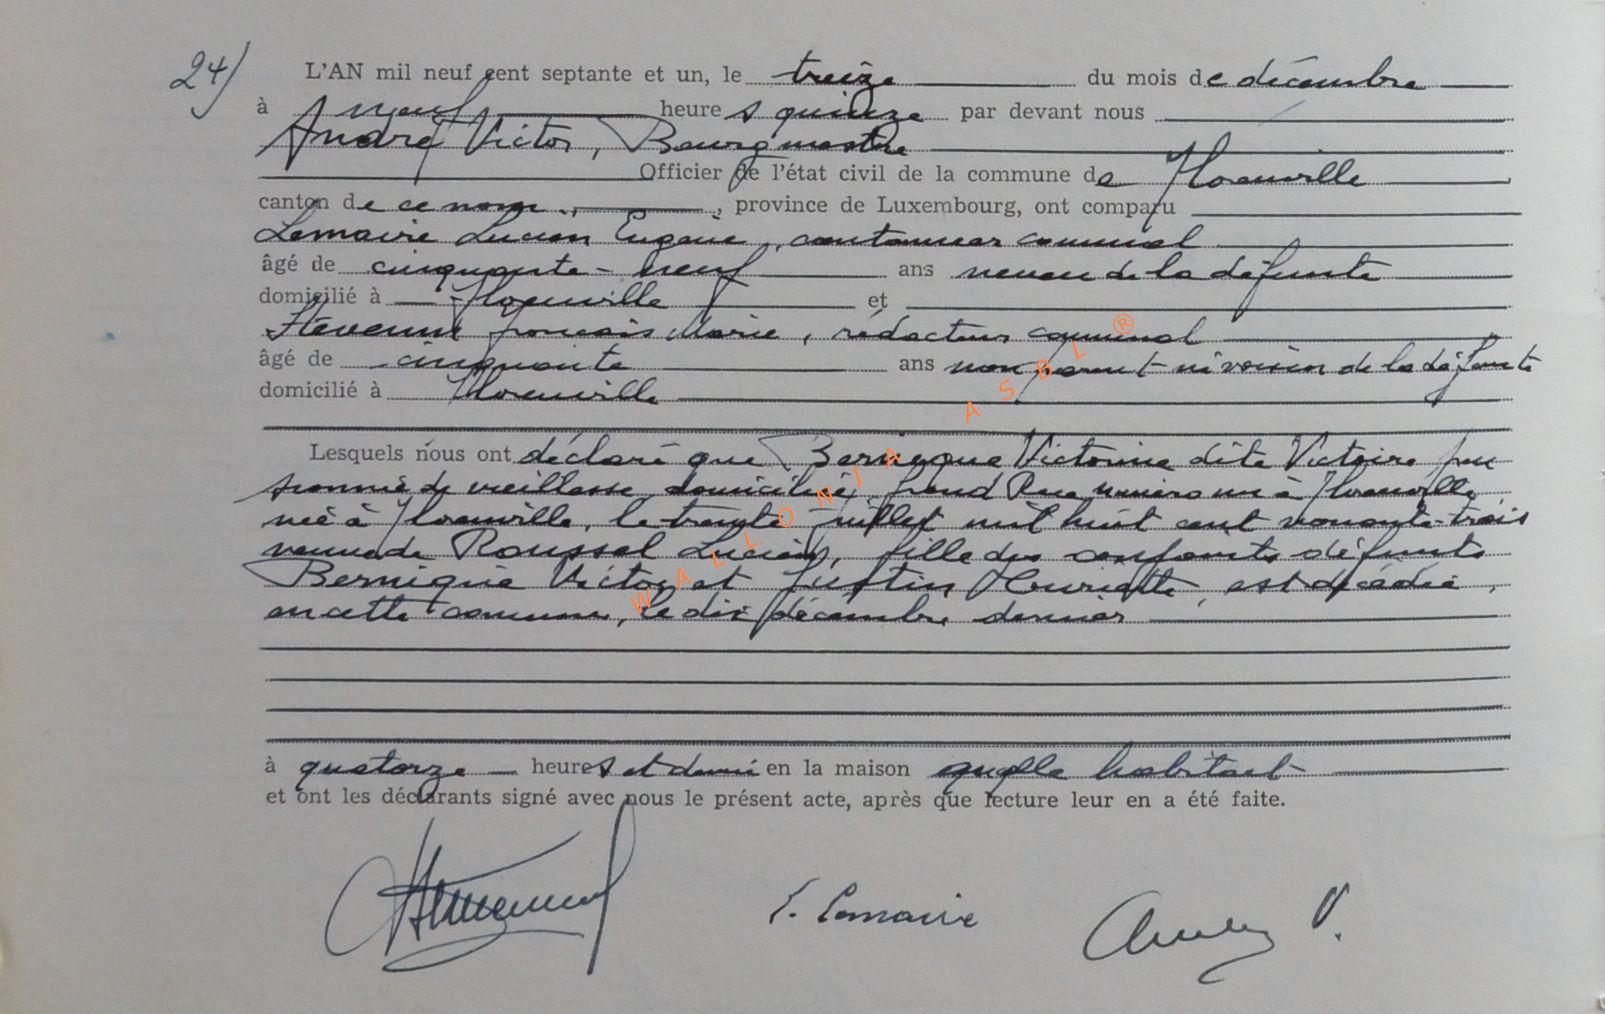 24) L'AN mil neuf cent septante et un, le treize du mois de décembre
à neuf heures quinze par devant nous
André Victor, Bourgmestre
Officier de l'état civil de la commune de Florenville
canton de ce nom, province de Luxembourg, ont comparu
Lemaire Lucien Eugène, cantonnier communal
âgé de cinquante-neuf ans neveu de la défunte
domicilié à Florenville et
Stevenin François Marie, rédacteur communal
âgé de cinquante ans non parent ni voisin de la défunte
domicilié à Florenville
Lesquels nous ont déclaré que Bernique Victorine dite Victoire pen
sionnée de vieillesse, domiciliée, Grand Rue numéro un à Florenville,
née à Florenville, le trente juillet mil huit cent nonante-trois
veuve de Roussel Lucien, fille des conjoints défunts
Bernique Victor et Justin Henriette, est décédée,
en cette commune, le dix décembre dernier
à quatorze heures et demi en la maison quelle habitait
et ont les déclarants signé avec nous le présent acte, après que lecture leur en a été faite.
L. Lemaire
André V.
WALLONIA ASBL ®